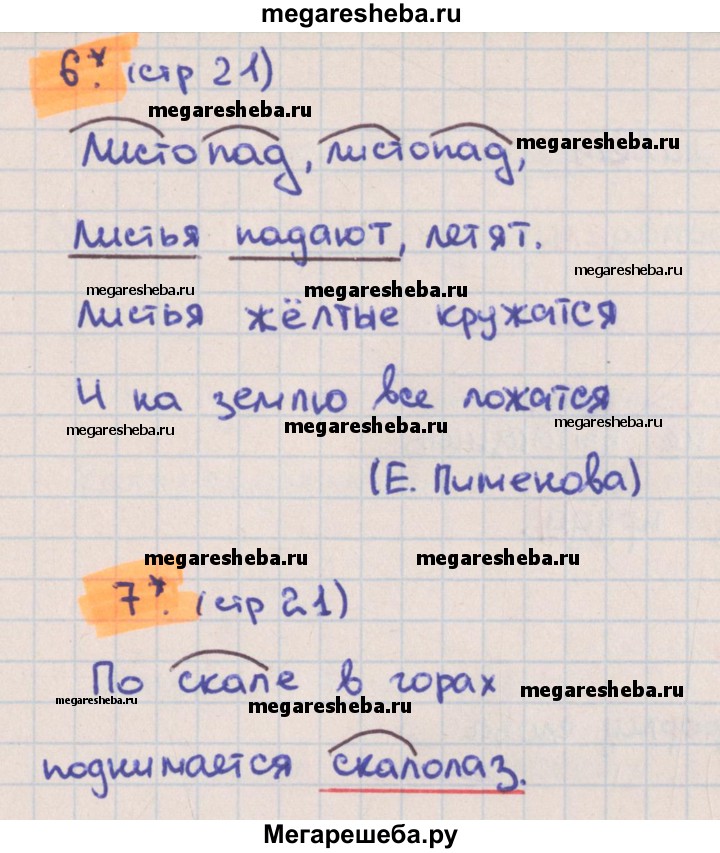 megaresheba.ru
6*. (стр 21)
megaresheba.ru
Листопад, листопад,
megaresheba.ru
Листья падают, летят.
megaresheba.ru
megaresheba.ru
megaresheba.ru
Листья жёлтые кружатся
И на землю все ложатся
megaresheba.ru
megaresheba.ru
megaresheba.ru
(Е. Пименова)
megaresheba.ru
megaresheba.ru
7*. (стр 21)
По скале в горах
megaresheba.ru
megaresheba.ru
megaresheba.ru
поднимается скалолаз.
Мегарешеба.ру